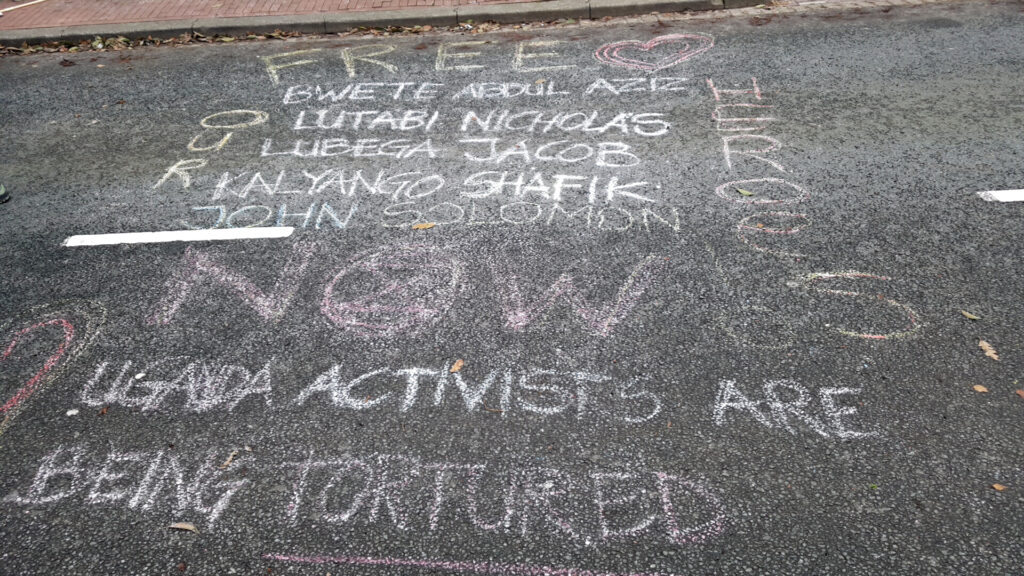 FREE
BWETE ABDUL AZIZ
LUTABI NICHOLAS
LUBEGA JACOB
KALYANGO SHAFIK
JOHN SOLOMON
OUR
HEROES
NOW
UGANDA ACTIVISTS ARE
BEING TORTURED